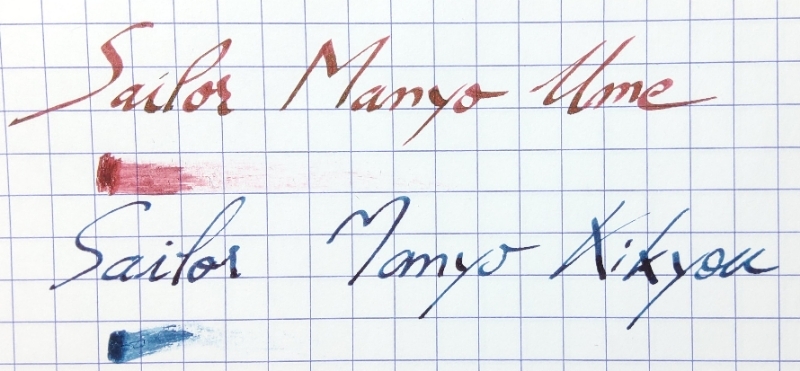 Sailor Manyo Ume
Sailor Manyo Kikyou